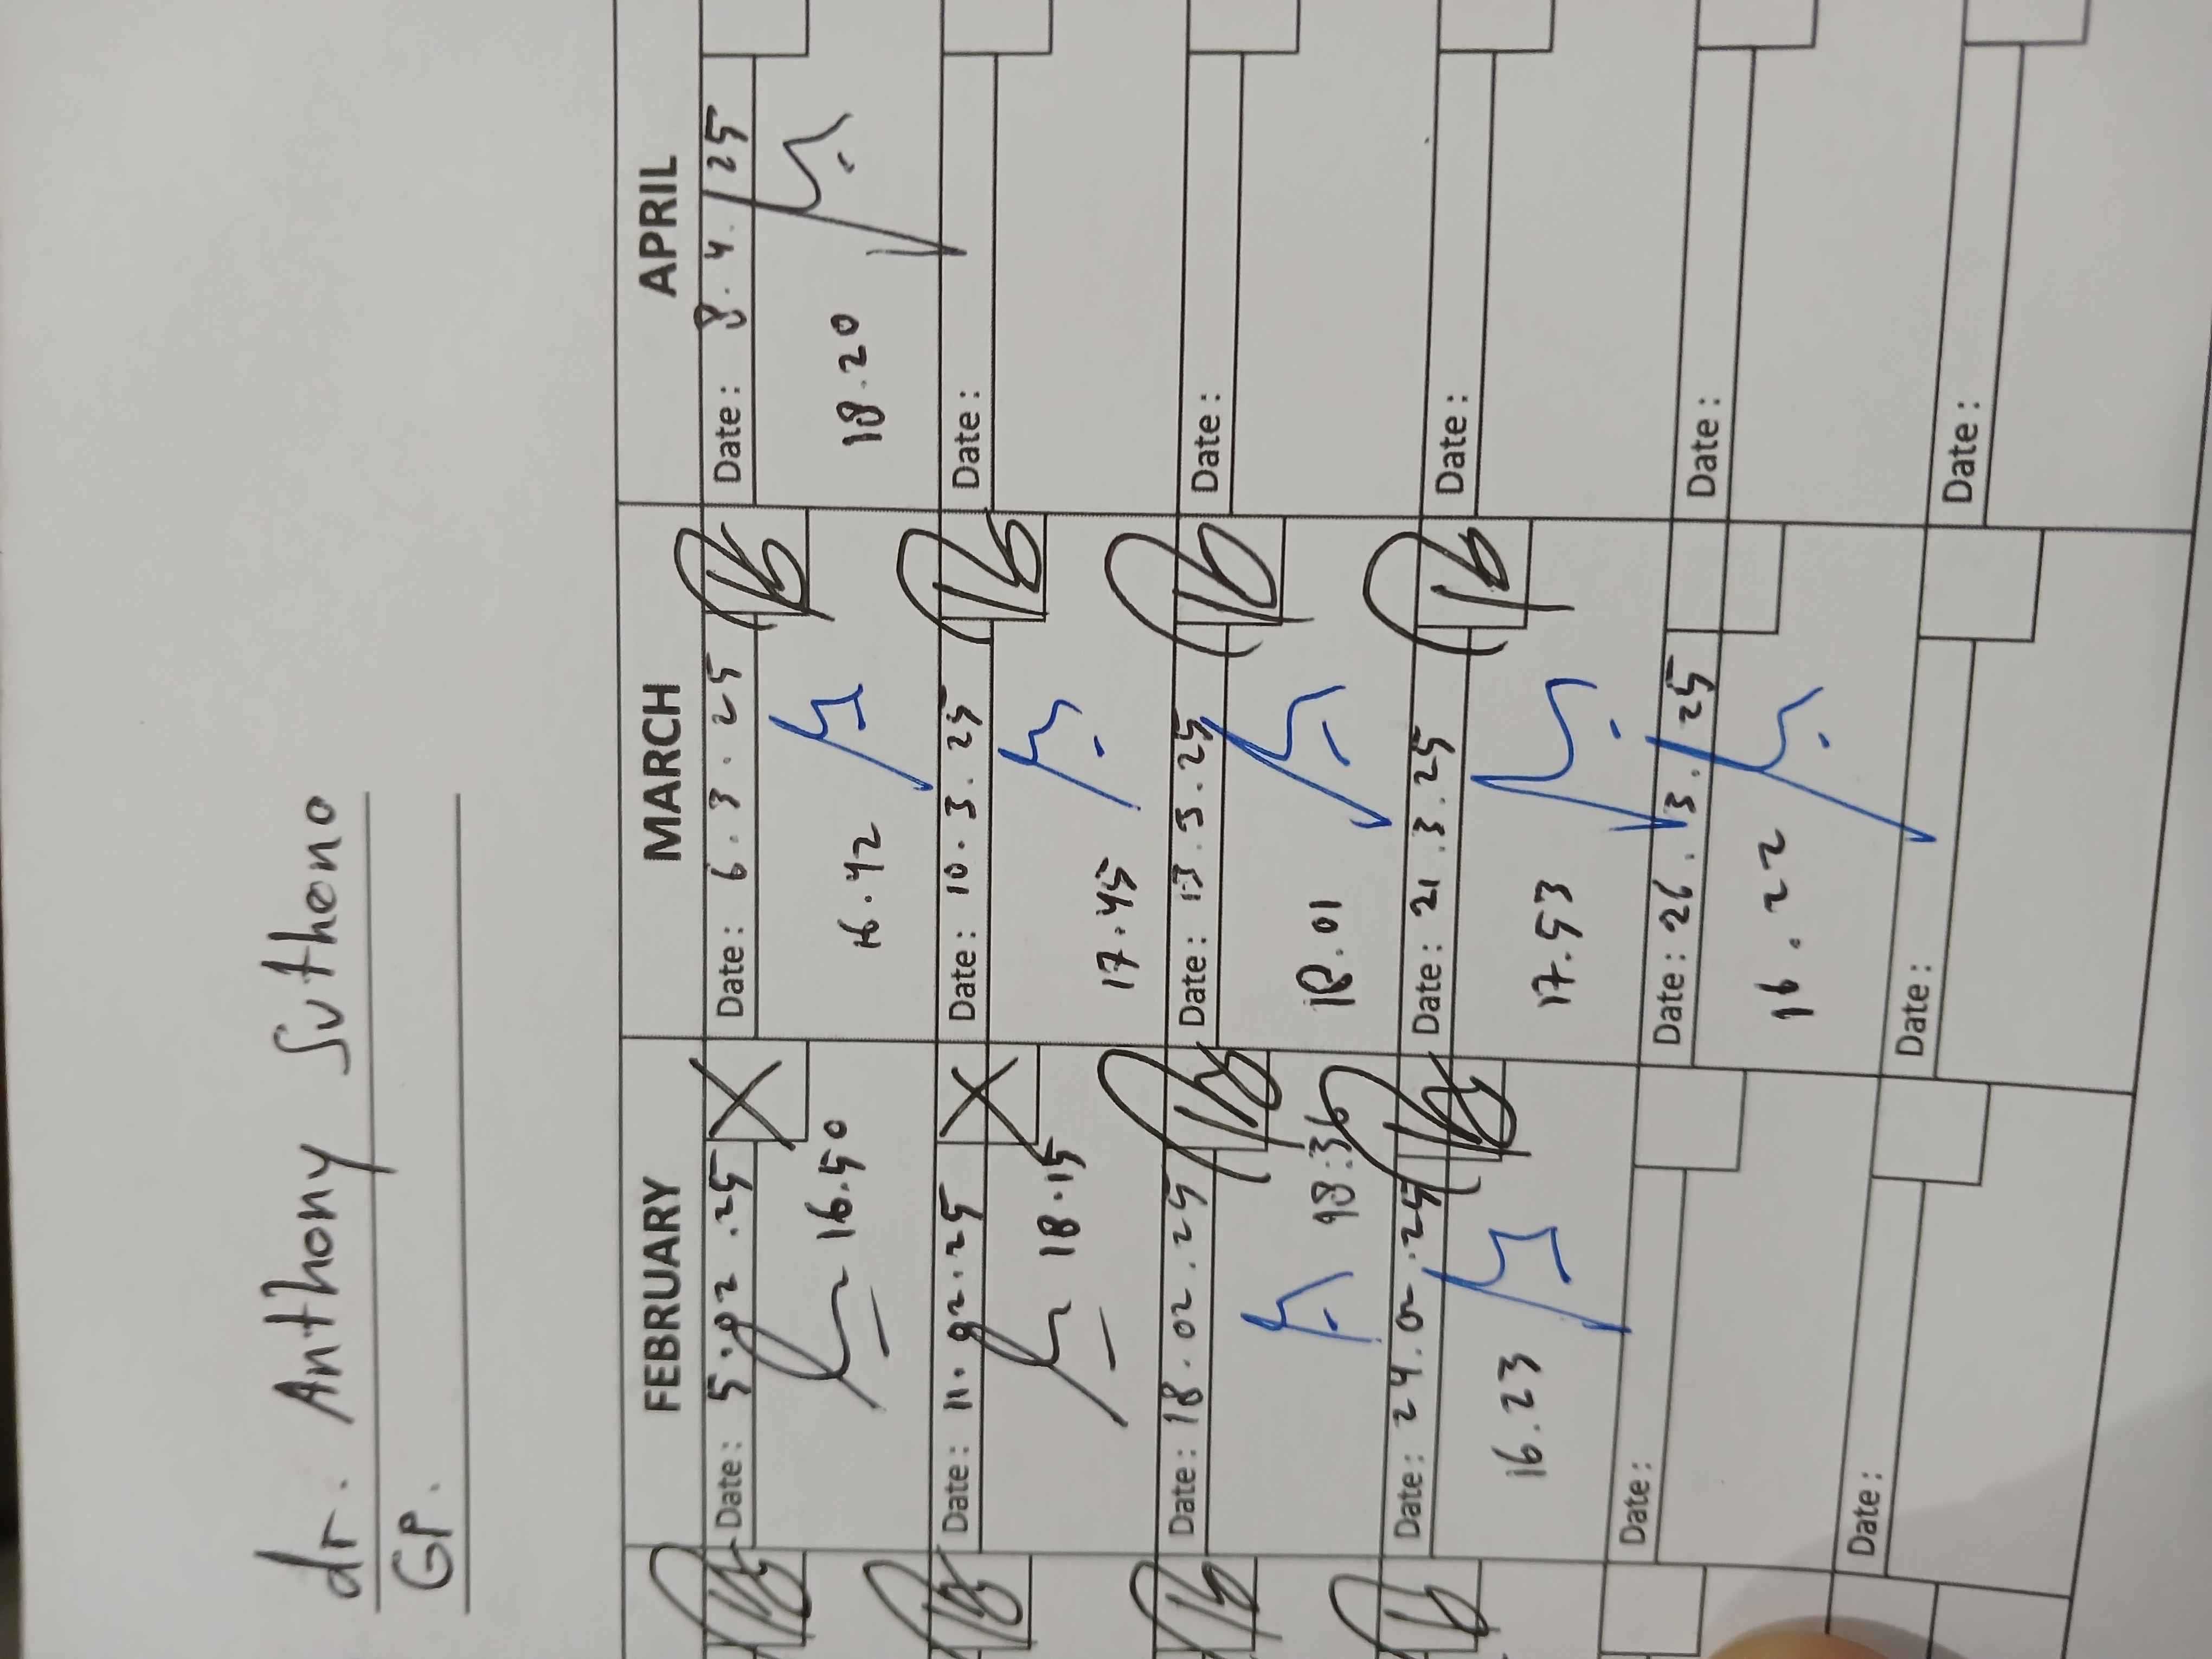 dr. Anthony Sutheno
GP.
FEBRUARY MARCH APRIL
Date: 5.02.25 Date: 6.3.25 Date: 8.4.25
16.50 16.42 18.20
Date: 11.02.25 Date: 10.3.25 Date:
18.15 17.45
Date: 18.02.25 Date: 13.3.25 Date:
18:36 18.01
Date: 24.02.25 Date: 21.3.25 Date:
16.23 17.53
Date: Date: 26.3.25 Date:
16.22
Date: Date: Date: